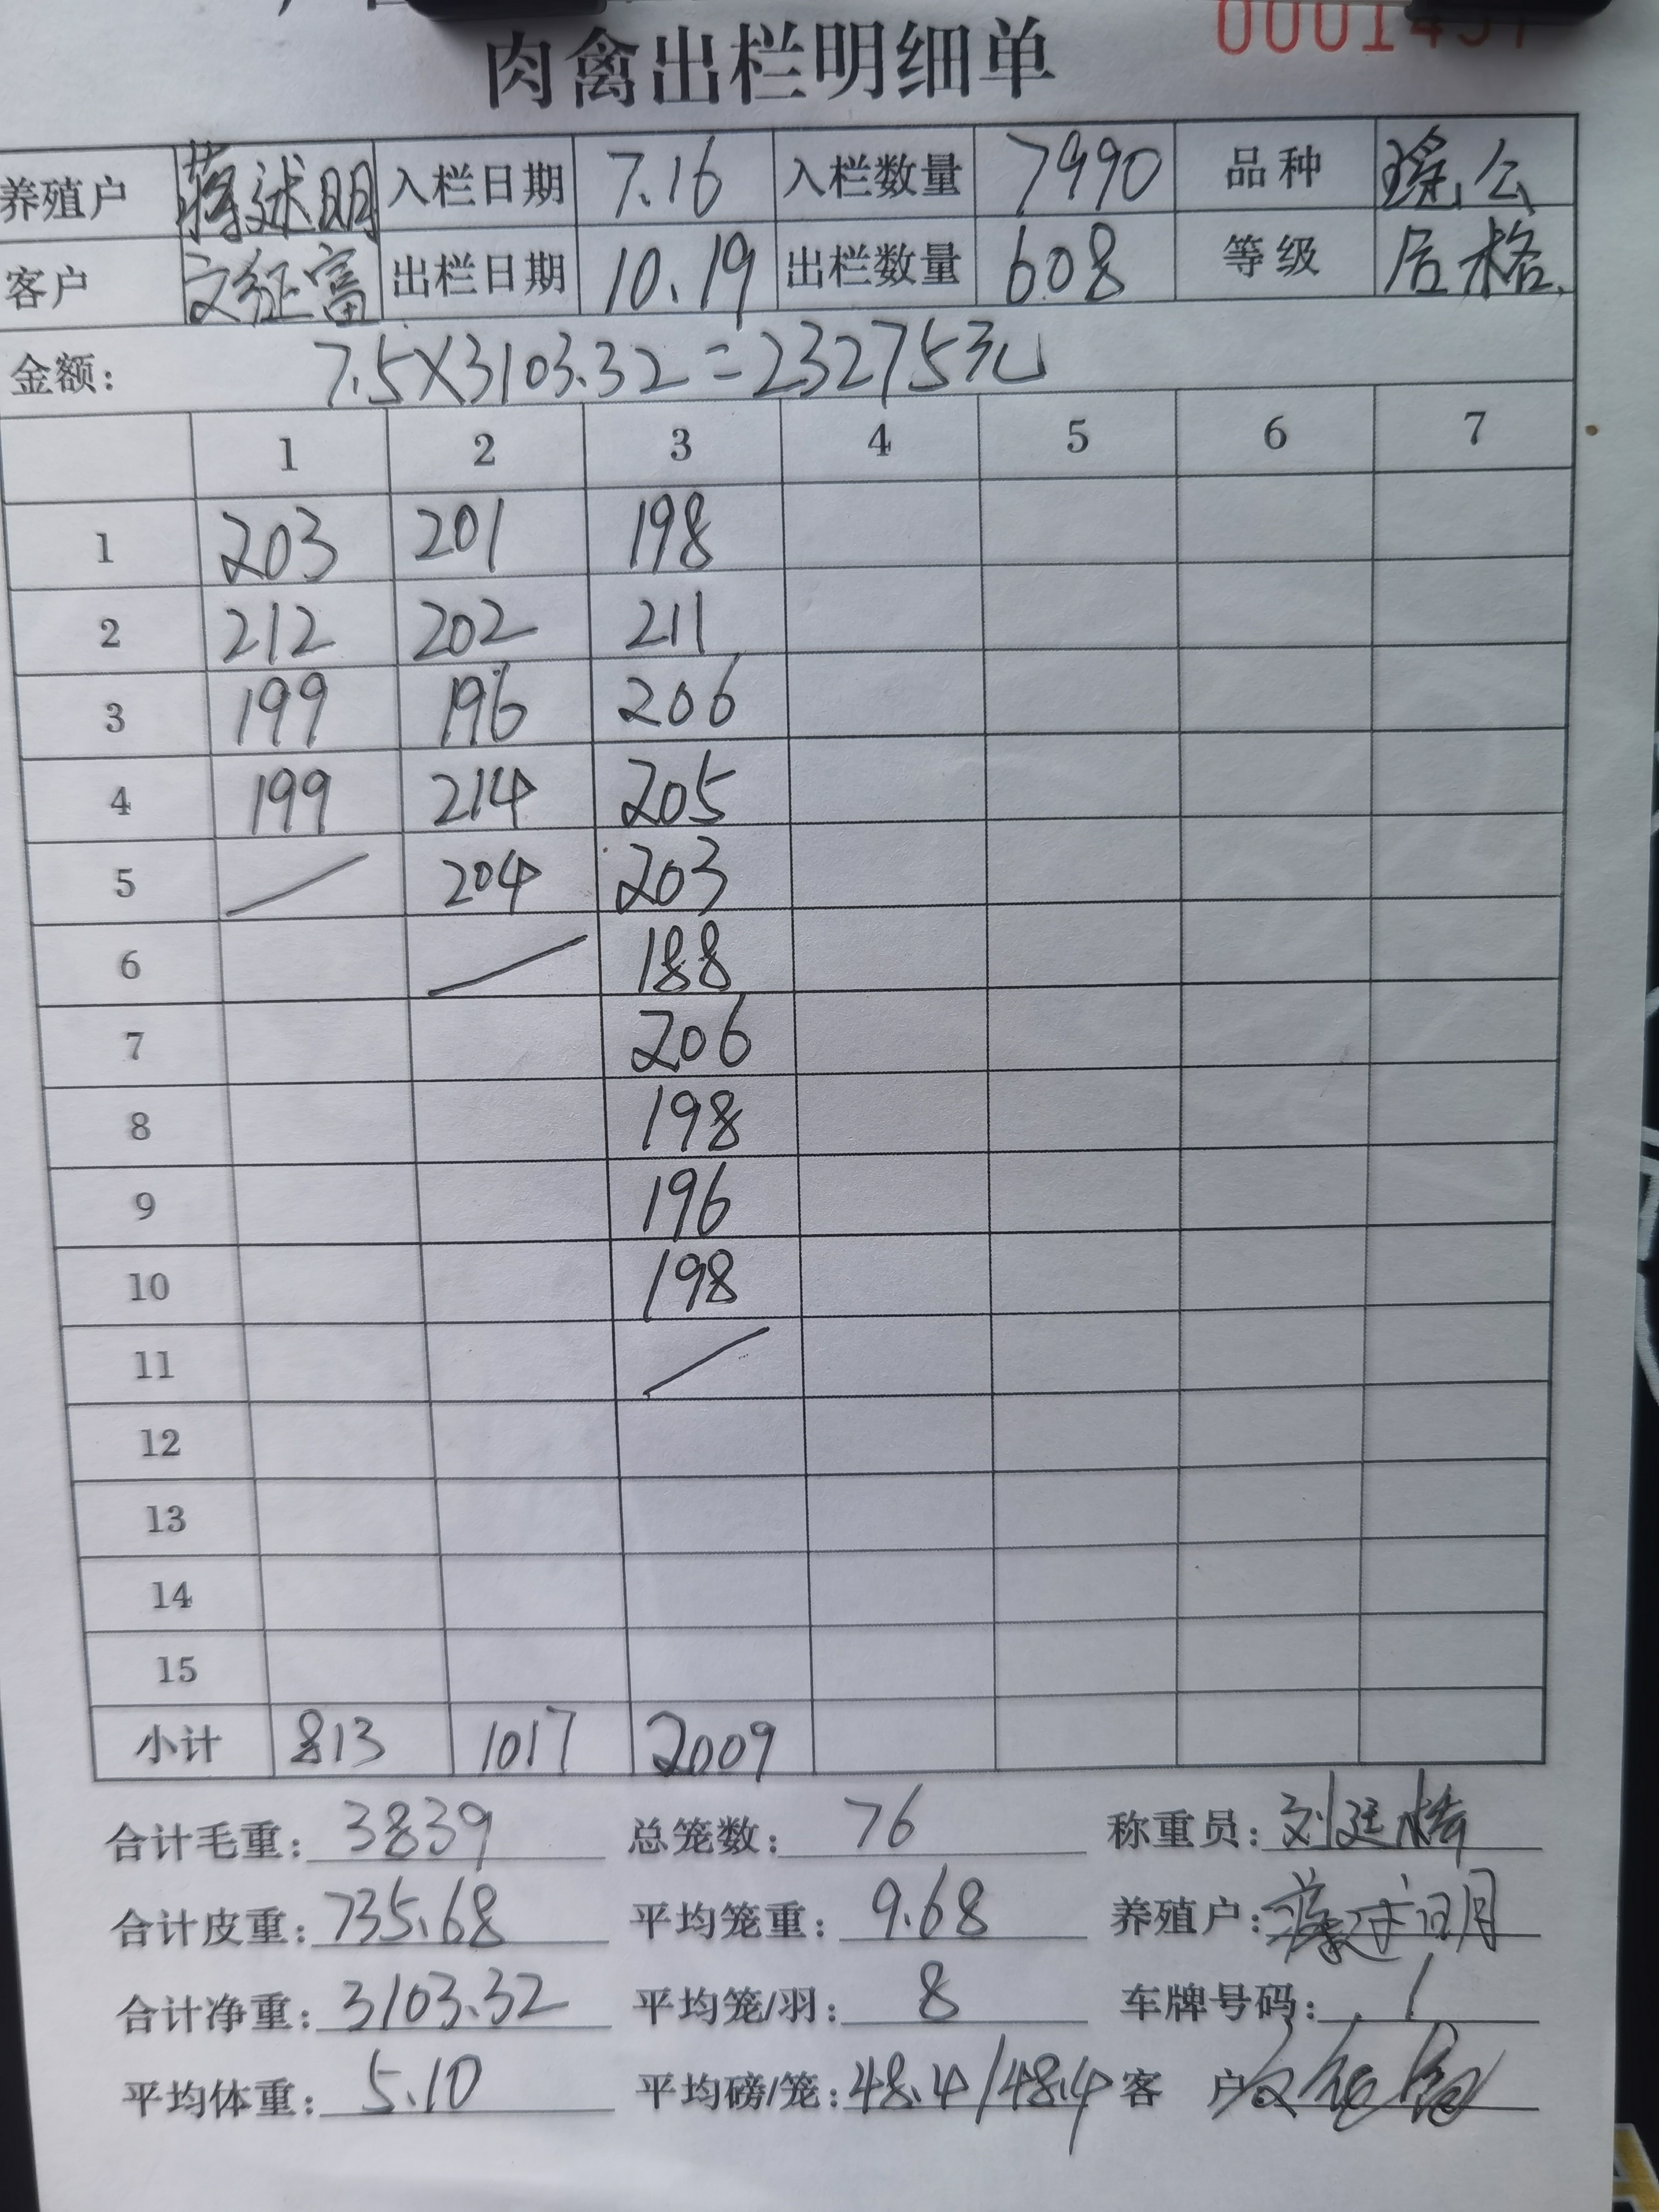 肉禽出栏明细单
养殖户 蒋述明 入栏日期 7.16 入栏数量 7990 品种 瑶公
客户 文征富 出栏日期 10.19 出栏数量 608 等级 后格
金额: 7.5×3103.32=23275元
1 2 3 4 5 6 7
1 203 201 198
2 212 202 211
3 199 196 206
4 199 214 205
5 204 203
6 188
7 206
8 198
9 196
10 198
11
12
13
14
15
小计 813 1017 2009
合计毛重: 3839 总笼数: 76 称重员: 刘廷
合计皮重: 735.68 平均笼重: 9.68 养殖户: 蒋述明
合计净重: 3103.32 平均笼/羽: 8 车牌号码: 1
平均体重: 5.10 平均磅/笼: 48.4/48.4 客 户